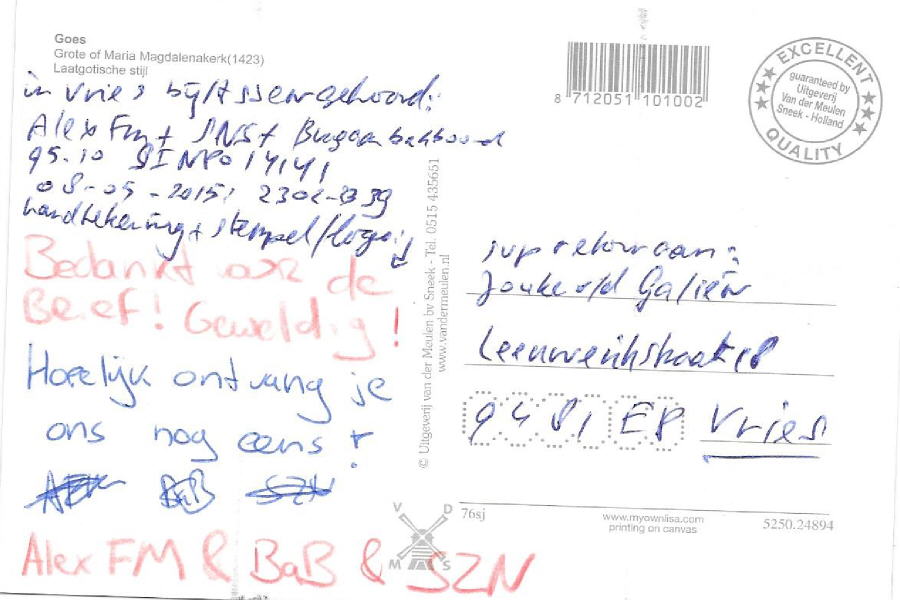 Goes
Grote of Maria Magdalenakerk(1423)
Laatgotische stijl
in Vries bij Assen gehoord:
Alex Fm + SNS +
95.10 SINPO 14141
08-05-2015: 2302-2339
handtekening + stempel/logo:
Bedankt voor de
Brief! Geweldig!
Hopelijk ontvang je
ons nog eens!
BaB
SZN
Alex FM & BaB & SZN
© Uitgeverij van der Meulen bv Sneek - Tel. 0515 435651
www.vandermeulen.nl
V D
M S
8 712051 101002
EXCELLENT
guaranteed by
Uitgeverij
Van der Meulen
Sneek - Holland
QUALITY
svp retour aan:
Jouke vld Galiën
Leeuwerikstraat 18
9481 EP Vries
76sj
www.myownlisa.com
printing on canvas
5250.24894